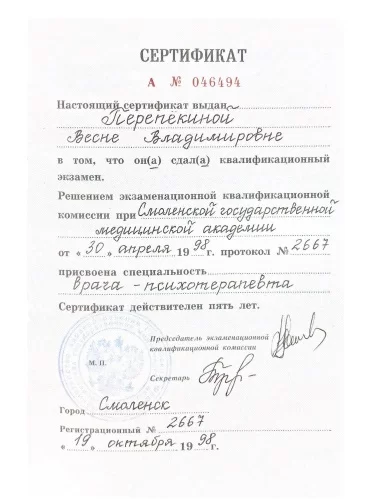 СЕРТИФИКАТ
А № 046494
Настоящий сертификат выдан
Перепёкиной
Весне Владимировне
в том, что он(а) сдал(а) квалификационный
экзамен.
Решением экзаменационной квалификационной
комиссии при Смоленской государственной
медицинской академии
от « 30 » апреля 19 98 г. протокол № 2667
присвоена специальность
врача - психотерапевта
Сертификат действителен пять лет.
Председатель экзаменационной
квалификационной комиссии
М. П.
Секретарь
Город Смоленск
Регистрационный № 2667
« 19 » октября 19 98 г.